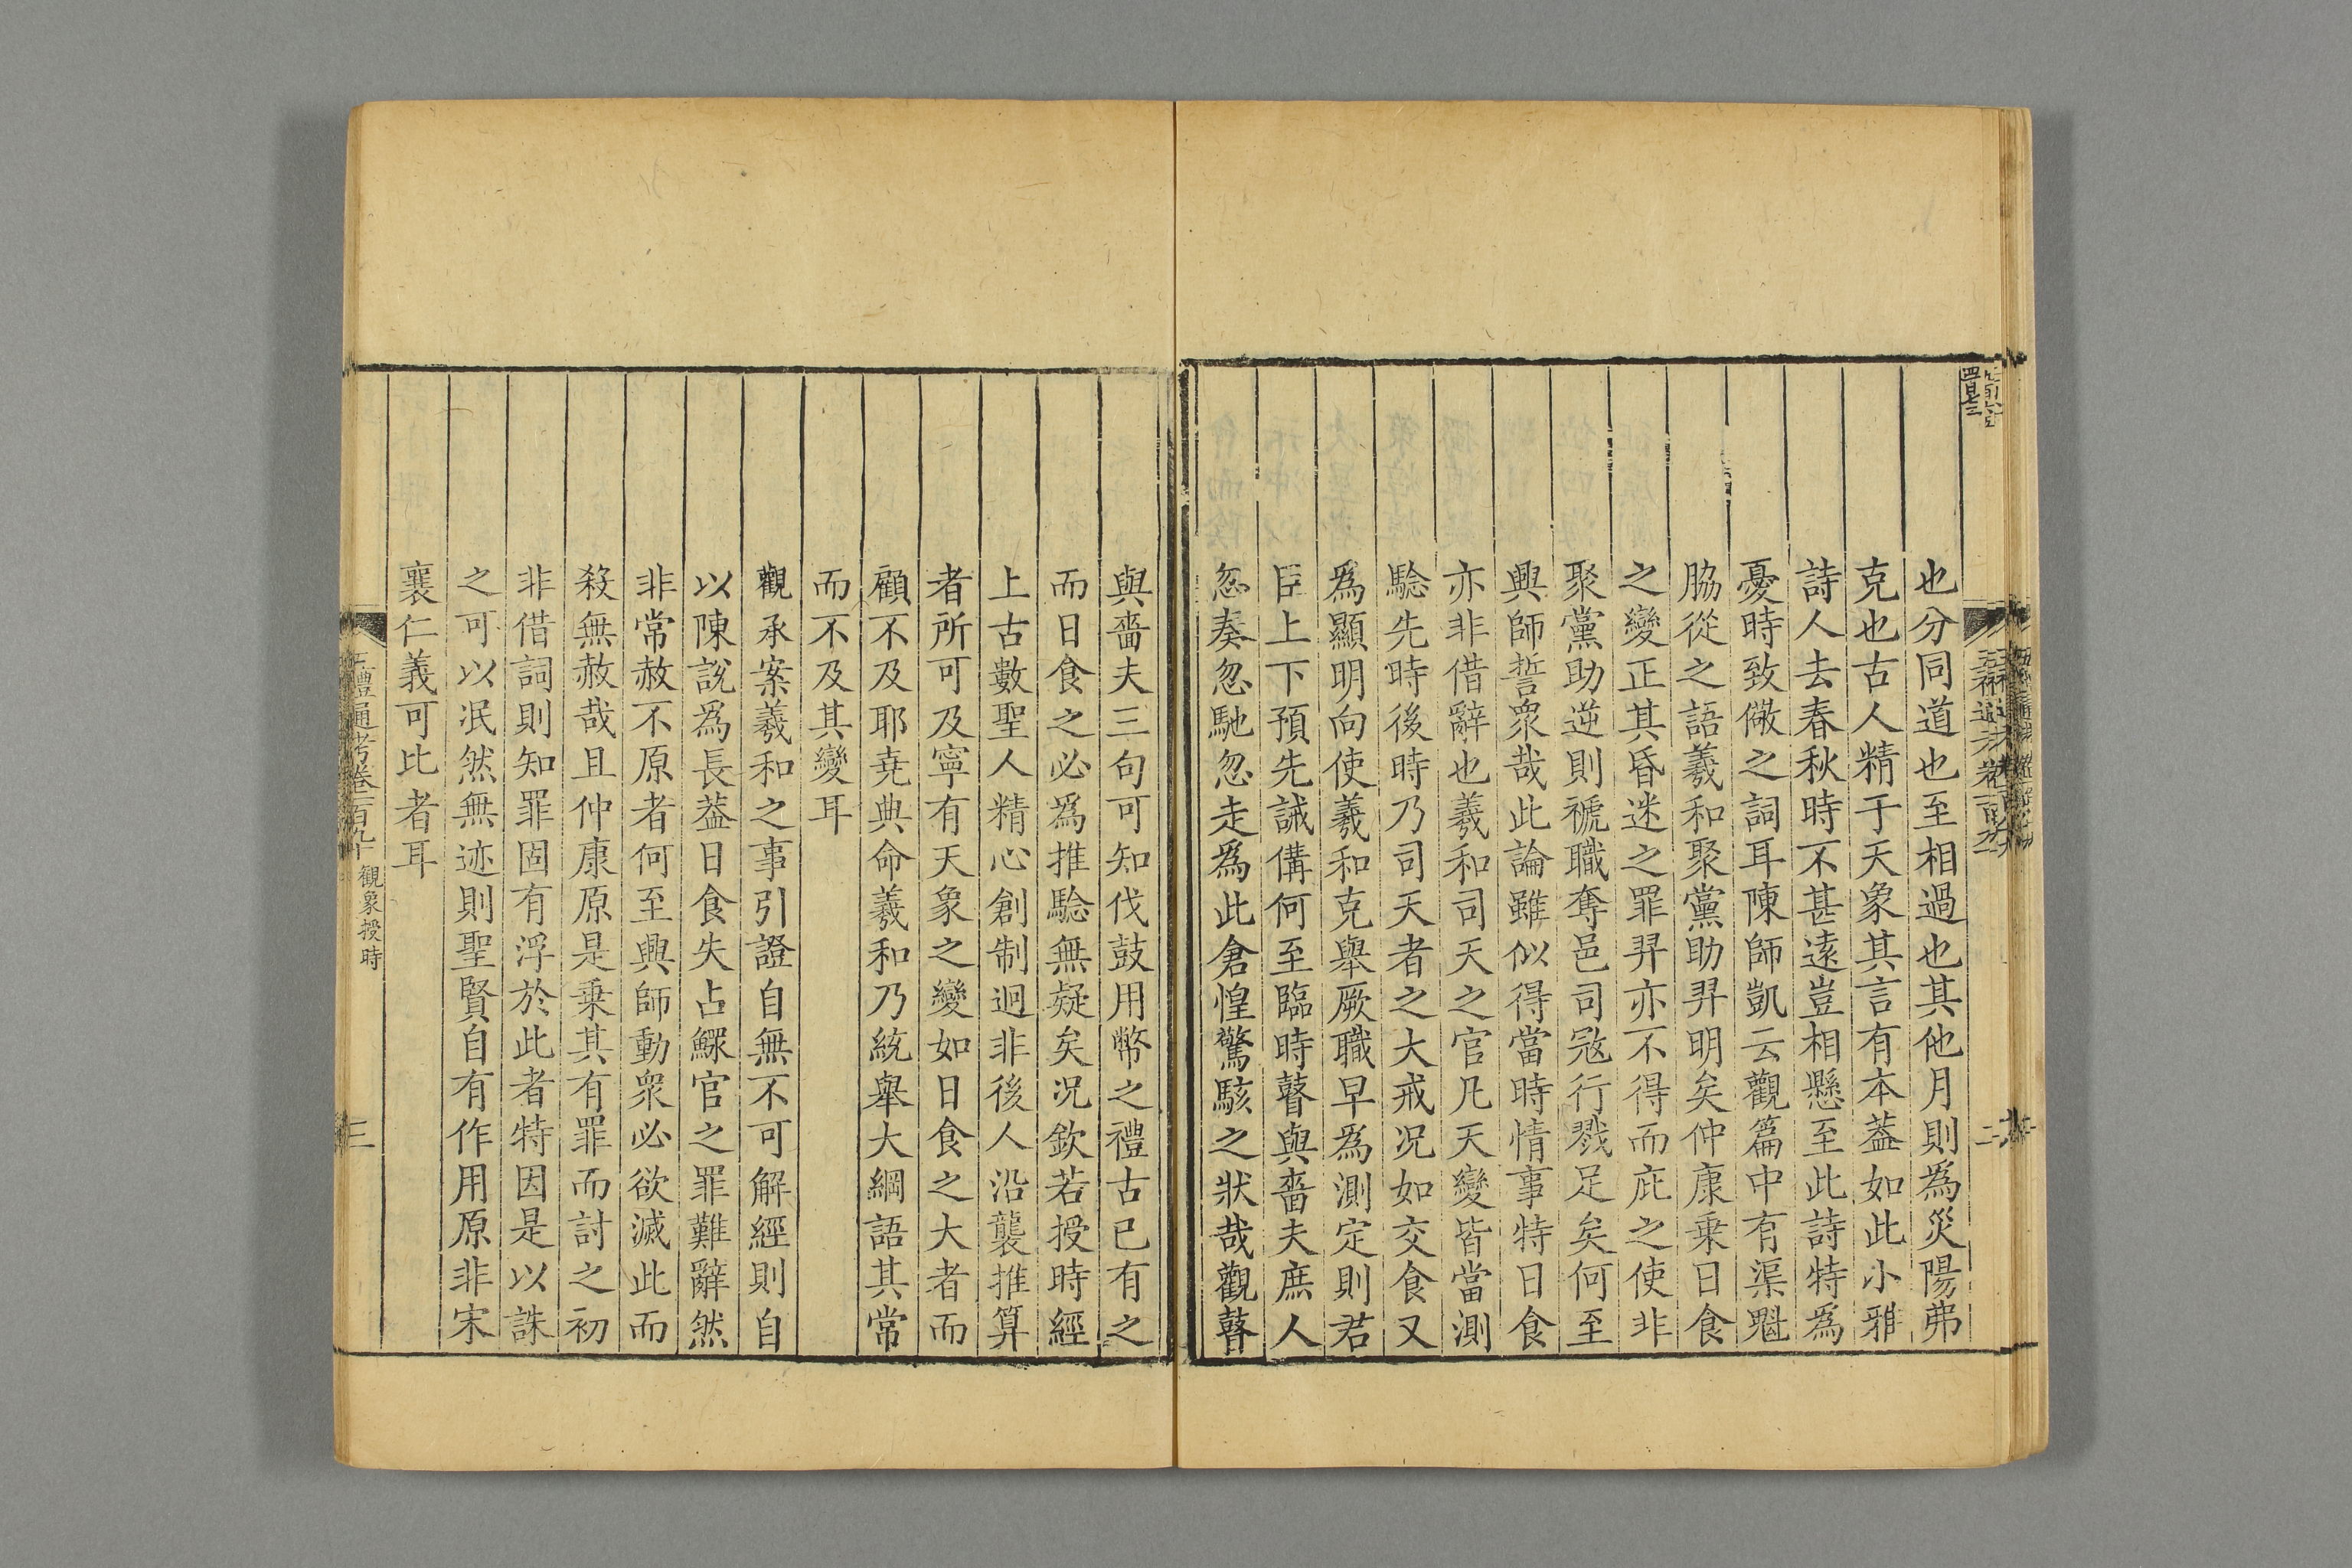 也分同道也至相過也其他月則爲災陽弗
克也古人精于天象其言有本葢如此小雅
詩人去春秋時不甚逺豈相懸至此詩特爲
憂時致儆之詞耳陳師凱云觀篇中有渠魁
脇從之語羲和聚黨助羿明矣仲康乗日食
之變正其昏迷之罪羿亦不得而庇之使非
聚黨助逆則褫職奪邑司冦行戮足矣何至
興師誓衆哉此論雖似得當時情事特日食
亦非借辭也羲和司天之官凡天變皆當測
騐先時後時乃司天者之大戒况如交食又
爲顯明向使羲和克舉厥職早爲測定則君
臣上下預先誡備何至臨時瞽與嗇夫庶人
忽奏忽馳忽走爲此倉惶驚駭之狀哉觀瞽
與嗇夫三句可知伐鼓用幣之禮古已有之
而日食之必爲推騐無疑矣况欽若授時經
上古數聖人精心創制迥非後人沿襲推算
者所可及寧有天象之變如日食之大者而
顧不及耶堯典命羲和乃統舉大綱語其常
而不及其變耳
觀承案羲和之事引證自無不可解經則自
以陳說爲長葢日食失占鰥官之罪難辭然
非常赦不原者何至興師動衆必欲滅此而
殺無赦哉且仲康原是乗其有罪而討之初
非借詞則知罪固有浮於此者特因是以誅
之可以泯然無迹則聖賢自有作用原非宋
襄仁義可比者耳
五禮通考卷一百九十 觀象授時
三